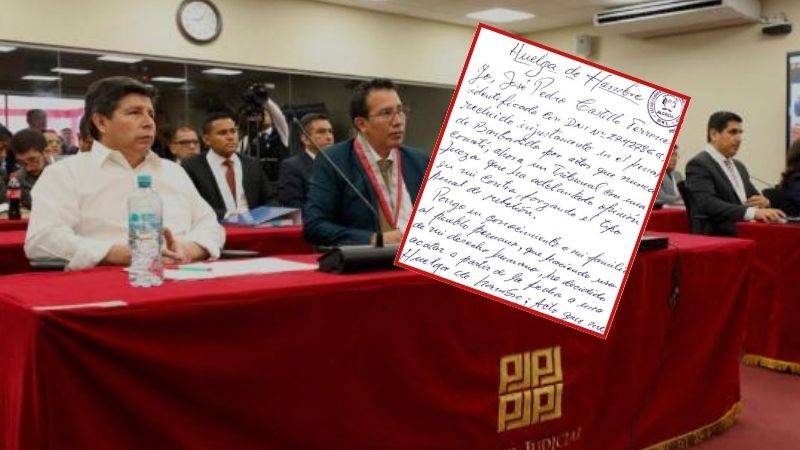 Huelga de Hambre
Yo, José Pedro Castillo Terrones
identificado con DNI Nº
recluido injustamente en el penal
de Barbadillo por actos que nunca
cometí; ahora un Tribunal con una
jueza que ha adelantado opinión
en mi contra forzando el tipo
penal de rebelión.
Pongo en conocimiento a mi familia
al pueblo peruano, que haciendo uso
de mi derecho humano, he decidido
acatar a partir de la fecha a una
Huelga de hambre; Acto que me
PJPJ
PJPJ
JUDICIAL